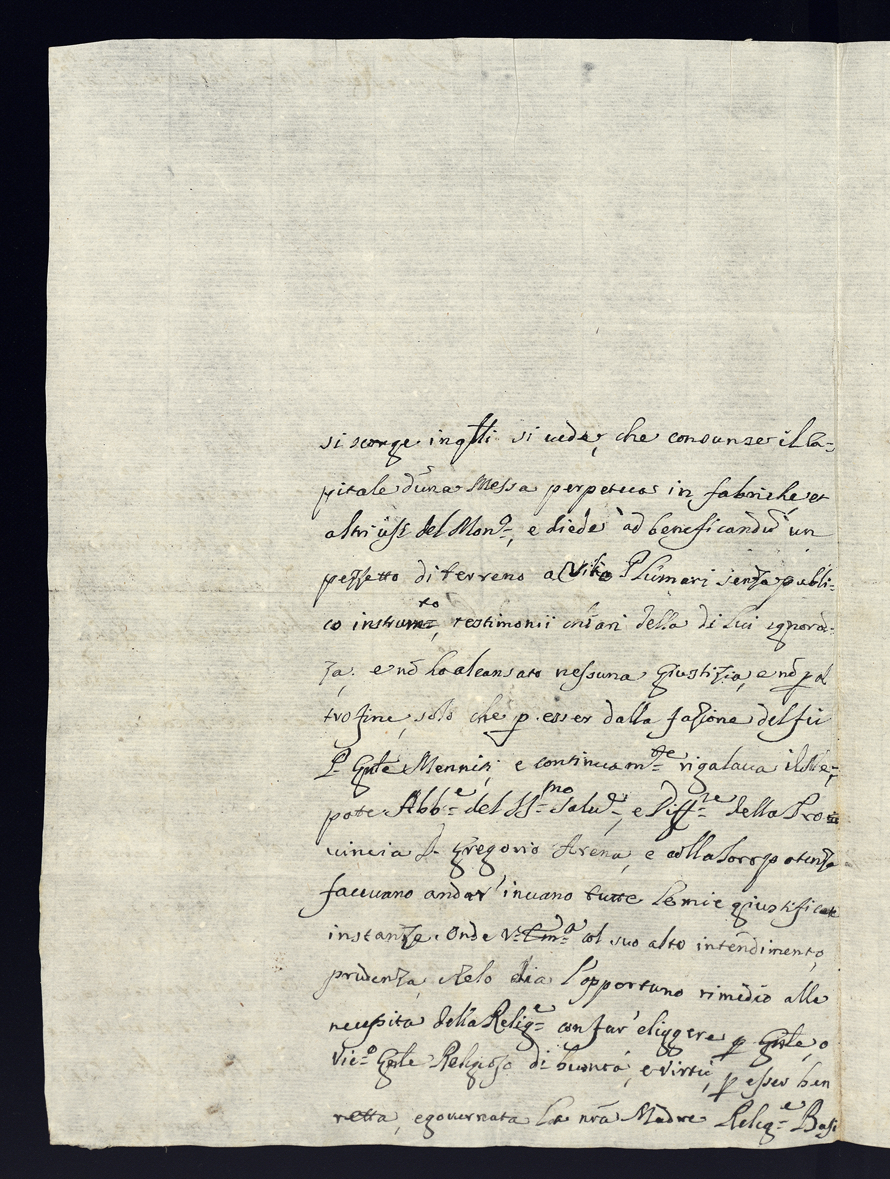 si scorge in q̃lli si vede, che consunse il Ca=
pitale d'una Messa perpetua in fabriche, et
altri usi del Mon:o, e diede ad beneficandũ un
pezzetto di terreno a Vito Plumari senza publi=
co instrum:to, testimonii chiari della di lui ignorã=
za. e nõ ho alcansato nessuna Giustizia, e nõ p al
tro fine, solo che p esser dalla fazione del fu
P. Gñle Menniti, e continuam:te rigalava il Ne=
pote Abb:e del SS:mo Salv:e, e Diff:re della Pro
vincia D. Gregorio Arena, e colla loro potenza
facevano andar' invano tutte le mie giustificate
instanze. Onde V:ra col suo alto intendimento,
prudenza, e zelo dia l'opportuno rimedio alle
necessità della Relig:e con far' eliggere p Gñle, o
Vic:o Gñle Religioso di buontà, e virtù, p esser ben
retta, e governata la nrã Madre Relig:e Basi